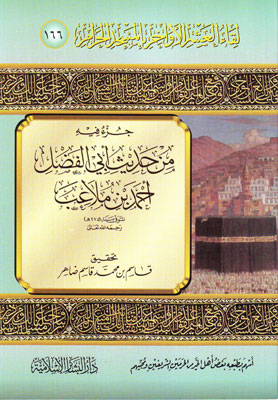 لقاء العشر الأواخر بالمسجد الحرام
١٦٦
جزء فيه
من حديث أبي الفضل
أحمد بن ملاعب
المتوفى سنة (٢٧٥ هـ)
رحمه الله تعالى
تحقيق
قاسم بن محمد قاسم ضاهر
أسهم بطبعه بعض أهل الخير من الحرمين الشريفين ومحبيهم
دار البشائر الإسلامية